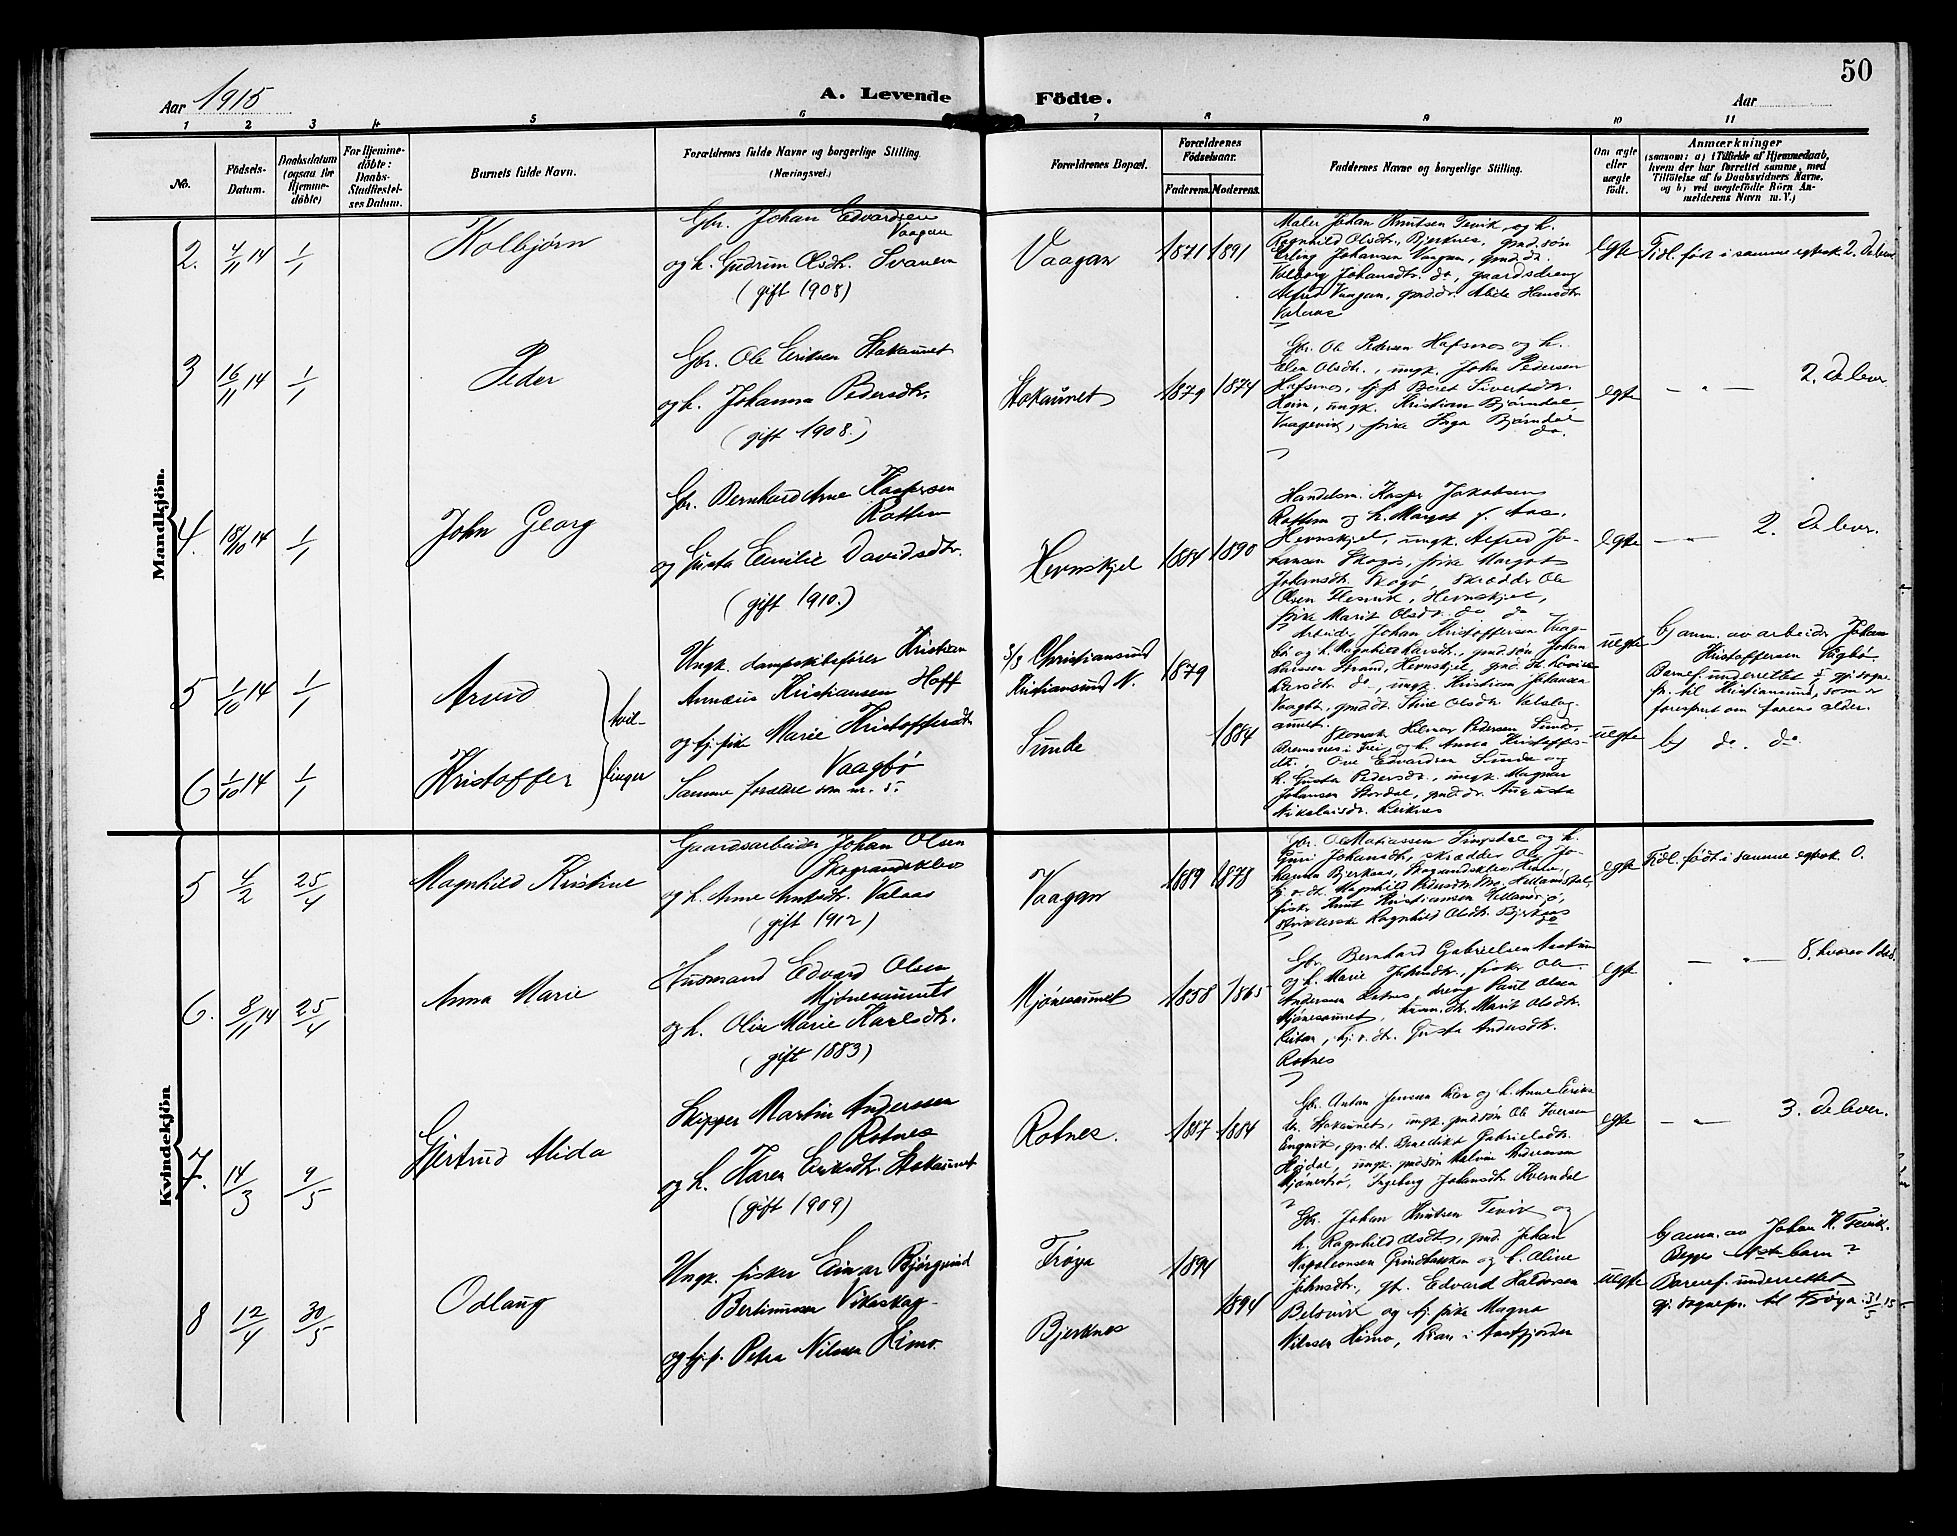 50
Aar 1915
A. Levende Födte.
Aar
1 2 3 4 5 6 7 8 9 10 11
No.
Födsels-
Datum.
Daabsdatum
(ogsaa for
Hjemme-
döbte)
For Hjemme-
döbte:
Daabs-
Stadfæstel-
ses Datum.
Barnets fulde Navn.
Forældrenes fulde Navne og borgerlige Stilling.
(Næringsvei.)
Forældrenes Bopæl.
Forældrenes
Födselsaar.
Faderens. Moderens.
Faddernes Navne og borgerlige Stilling.
Om ægte
eller
uægte
födt.
Anmærkninger
(saasom: a) i Tilfælde af Hjemmedaab,
hvem der har forrettet samme, med
Tilföielse af to Daabsvidners Navne,
og b) ved uægtefödte Börn An-
melderens Navn m. V.)
Mandkjön.
2. 4/11 14 1/1 Kolbjørn
Gbr. Johan Edvardsen
Vaagan
og h. Gudrun Olsdtr. Svanem
(gift 1908)
Vaagan 1871 1891
Maler Johan Knutsen Tevik og h.
Ragnhild Olsdtr., Bjerknes, gmd.søn
Erling Johansen Vaagan, gmd.dr.
Valborg Johansdtr. do, gaardsdreng
Alfred Vaagan, gmd.dr. Hansdtr.
egte Tidl. født i samme egtesk. 2. De lever
3 16/11 14 1/1 Peder
Gbr. Ole Eriksen Stokaunet
og h. Johanna Pedersdtr.
(gift 1908.)
Stokaunet 1879 1874
Gbr. Ole Pedersen Hafsmo og h.
Elen Olsdtr., ungk. John Pedersen
Hafsmo, tj.p. Beret Sivertsdtr.
Heim, ungk. Kristian Bjørndal,
Vaagevik, pike Inga Bjørndal
do.
egte — " — 2. De lever
4. 18/10 14 1/1 John Georg
Gbr. Bernhard Arne Kaspersen
Rottem
og Gusta Emilie Davidsdtr.
(gift 1910.)
Hevnskjel 1884 1890
Handelsm. Kasper Jakobsen
Rottem og h. Margot f. Aas,
Hevnskjel, ungk. Alfred Jo-
hansen Skogø, pike Margot
Johansdtr. Skogø, skrædder Ole
Olsen Hevnskjel,
pike Marit Olsdtr. do do
egte — " — 2. De lever.
5 1/10 14 1/1 Arvid
tvil-
linger
Ungk. dampskibsfører Kristian
Annæus Kristiansen Hoff
og tj.pike Marie Kristoffersdtr
Vaagbø
Christiansund
Kristiansund N. 1879
Sunde 1884
Arbeider Johan Kristoffersen Vaag-
bø og h. Magnhild Larsdtr., gmd.søn Johan
Larssen Strand, Hevnskjel, gmd.dr. Lovise
Larsdtr. do, ungk. Kristian Johansen
Vaagbø, gmd.dt. Stine Olsdtr. Valslag-
aunet.
uegte b) anm. av arbeider Johan
Kristoffersen Vågbø.
Barnef. underrettet gj. sogne-
pr. til Kristiansund, som er
forespurt om farens alder.
6 1/10 14 1/1 Kristoffer
Samme forældre som nr. 5.
Hilmar Pedersen Sunde,
Bremnes i Frei, og h. Anna Kristoffers-
dtr., Ove Edvardsen Sunde og
h. Gusta Pedersdtr., ungk. Magnus
Johansen Stordal, gmd.dr. Augusta
Nikolaisdtr.
uegte b) do. do.
Kvindekjön
5 4/2 25/4 Magnhild Kristine
Gaardsarbeider Johan Olsen
Skograndsklev
og h. Anne Valaas
(gift 1912)
Vaagan 1889 1878
Gbr. Ole Mathiassen og h.
Guri Johansdtr., skrædder Ole Jo-
hansen Bjerknes,
Magnhild Pedersdtr.
fisker Knut Kristiansen
Ragnhild Olsdtr. Bjerknes
egte Tidl. født i samme egtesk. 0.
6. 8/11 14 25/4 Anna Marie
Husmand Edvard Olsen
Mjønesaunet
og h. Oline Marie Karlsdtr.
(gift 1883)
Mjønesaunet 1858 1865
Gbr. Bernhard Gabrielsen
og h. Marie Johansdtr., fisker Ole
Andersen Rotnes, dreng Paul Olsen
Mjønesaunet, Marit Olsdtr.
Gusta Andersdtr.
Rotnes
egte — " — 8. hvorav 1 død.
7. 14/3 9/5 Gjertrud Alida
Skipper Martin Andersen
Rotnes
og h. Karen Eriksdtr. Stokaunet
(gift 1909)
Rotnes. 1887 1884
Gbr. Anton Jensen og h. Anne Eriks-
dtr. Stokaunet, ungk. gmd.søn Ole Iversen
Engvik, gm.dt. Benedikte Gabrielsdtr.
ungk. gmd.søn Andersen
Ingeborg Johansdtr. Kverndal
egte — " — 3. De lever.
8 12/4 30/5 Odlaug
Ungk. fisker Einar Bjørgvind
Bertinussen Vikaskag
og tj.p. Petra Nilsen Himo.
Frøya 1894
Bjerknes 1894
Gbr. Johan Knutsen Tevik og
h. Ragnhild Olsdtr., gmd. Johan
Napoleonsen Grindbakken og h. Oline
Johnsdtr., gt. Edvard Haldorsen
Belsvik og tj.pike Magna
Nilssen Himo, i Aastfjorden
uegte b) anm. av Johan K. Tevik.
Begges 1ste barn?
Barnef. underrettet
gj. sognepr. til Frøya 31/5 15